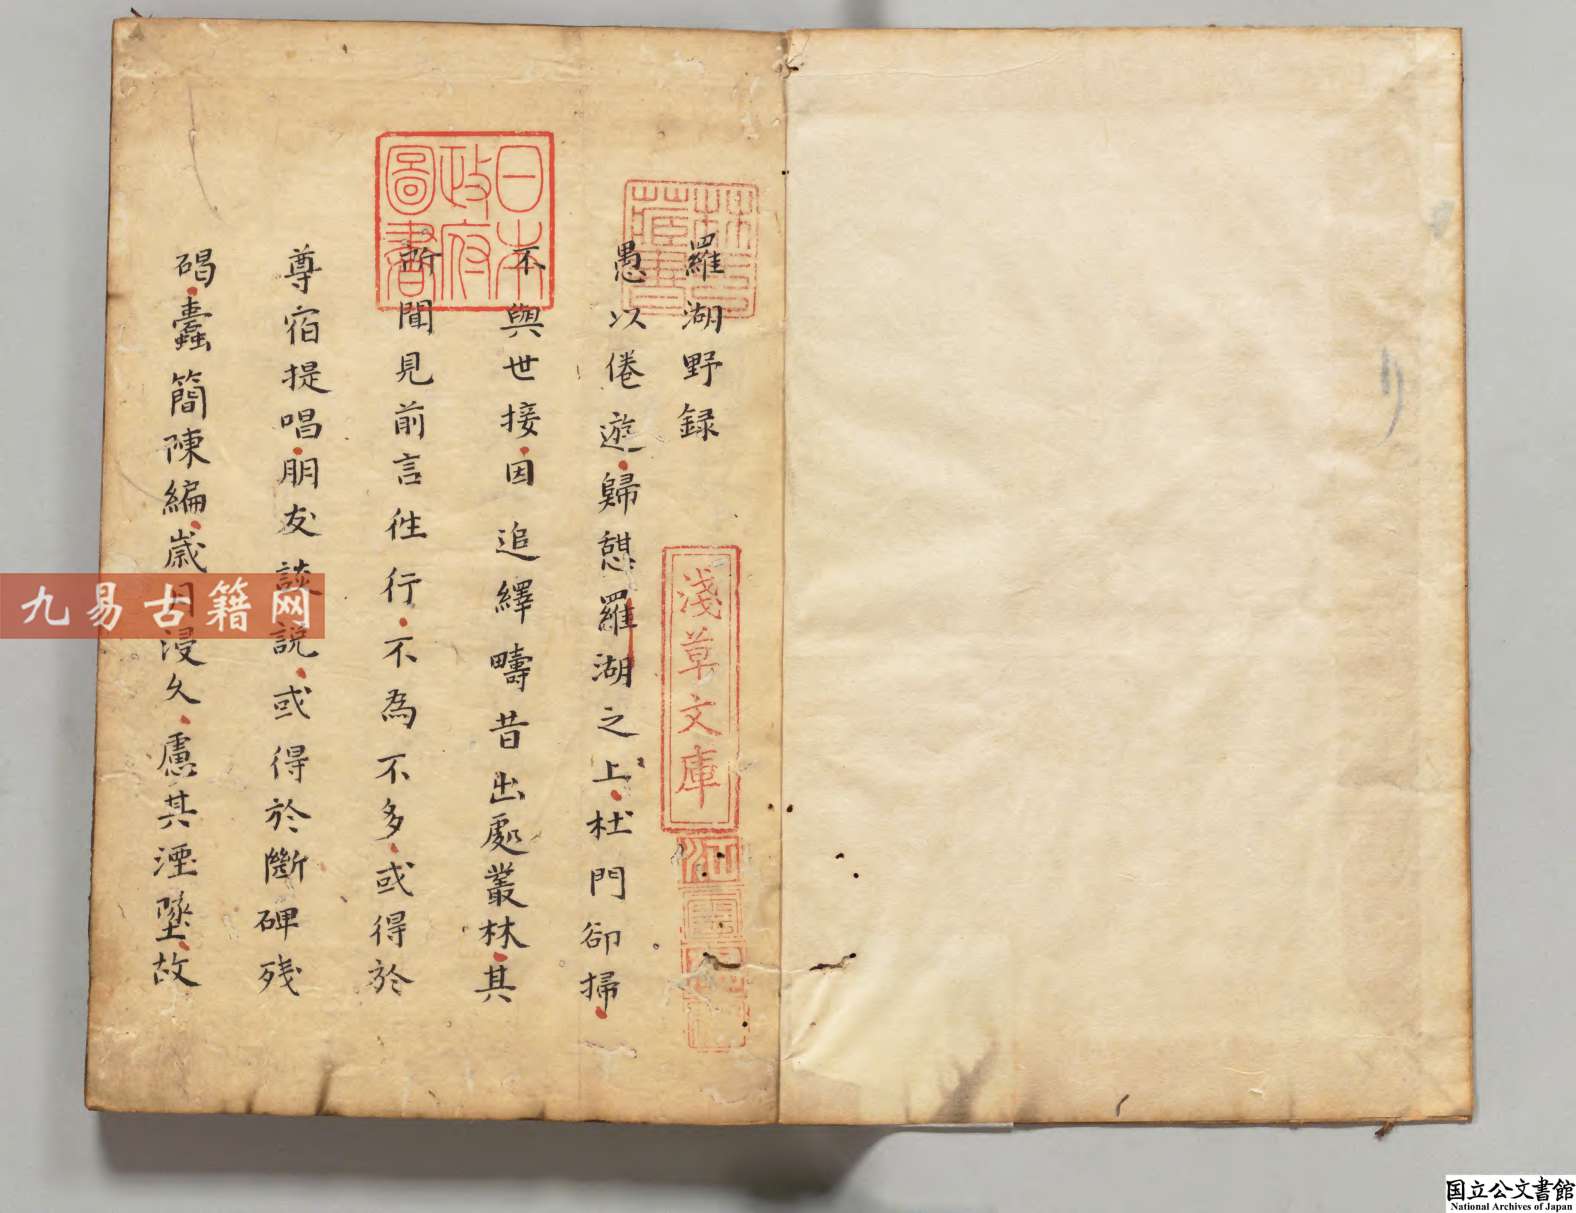 羅湖野録
愚以倦遊歸憇羅湖之上杜門卻掃
不與世接因追繹疇昔出處叢林其
所聞見前言徃行不為不多或得於
尊宿提唱朋友談説或得於斷碑残
碣蠹簡陳編歳月浸久慮其湮墜故
日本政府圖書
林氏藏書
淺草文庫
九易古籍网
国立公文書館
National Archives of Japan